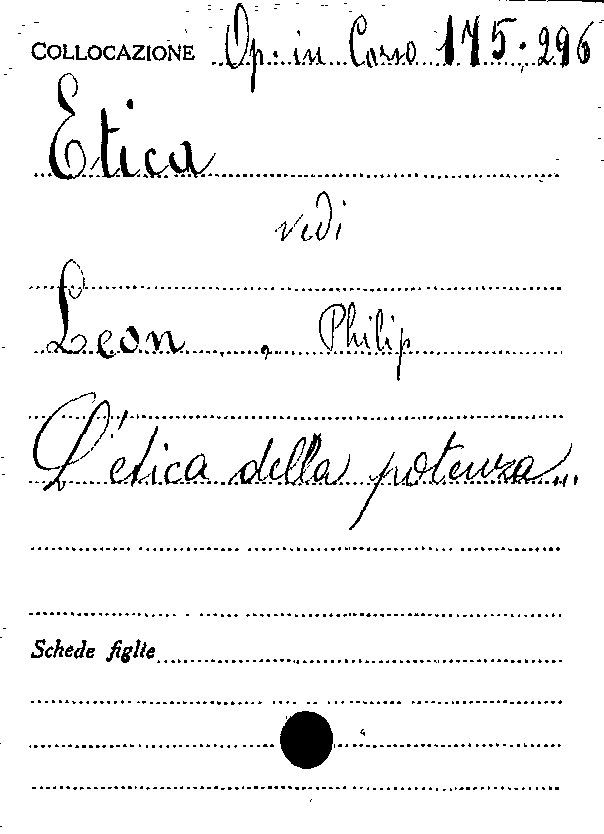 COLLOCAZIONE Op. in Corso 175.296
Etica
vedi
Leon, Philip
L'etica della potenza...
Schede figlie